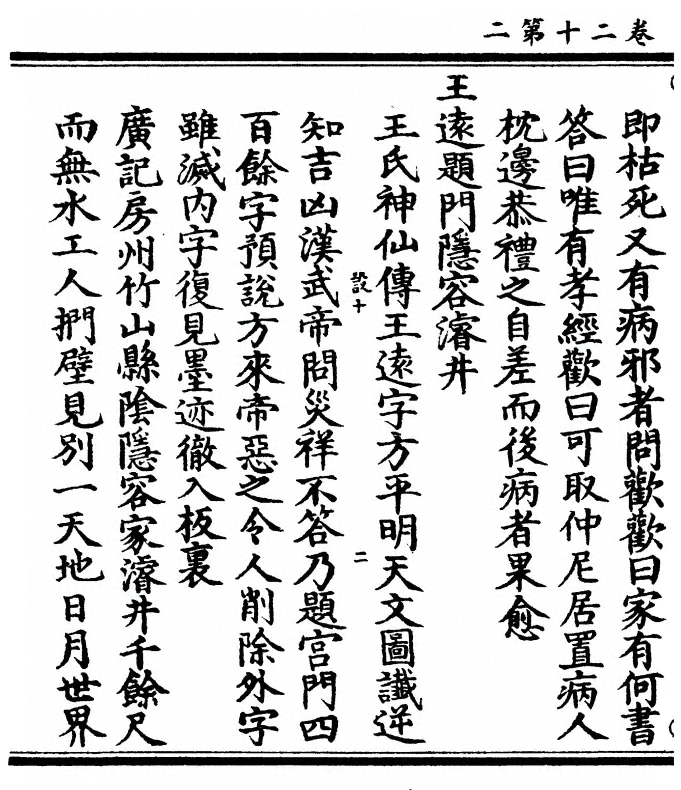 卷二十第二
即枯死又有病邪者問歡歡曰家有何書
答曰唯有孝經歡曰可取仲尼居置病人
枕邊恭禮之自差而後病者果愈
王遠題門隱容濬井
王氏神仙傳王遠字方平明天文圖讖逆
設十
二
知吉凶漢武帝問災祥不答乃題宫門四
百餘字預說方來帝惡之令人削除外字
雖滅内字復見墨迹徹入板裏
廣記房州竹山縣陰隱容家濬井千餘尺
而無水工人捫壁見別一天地日月世界